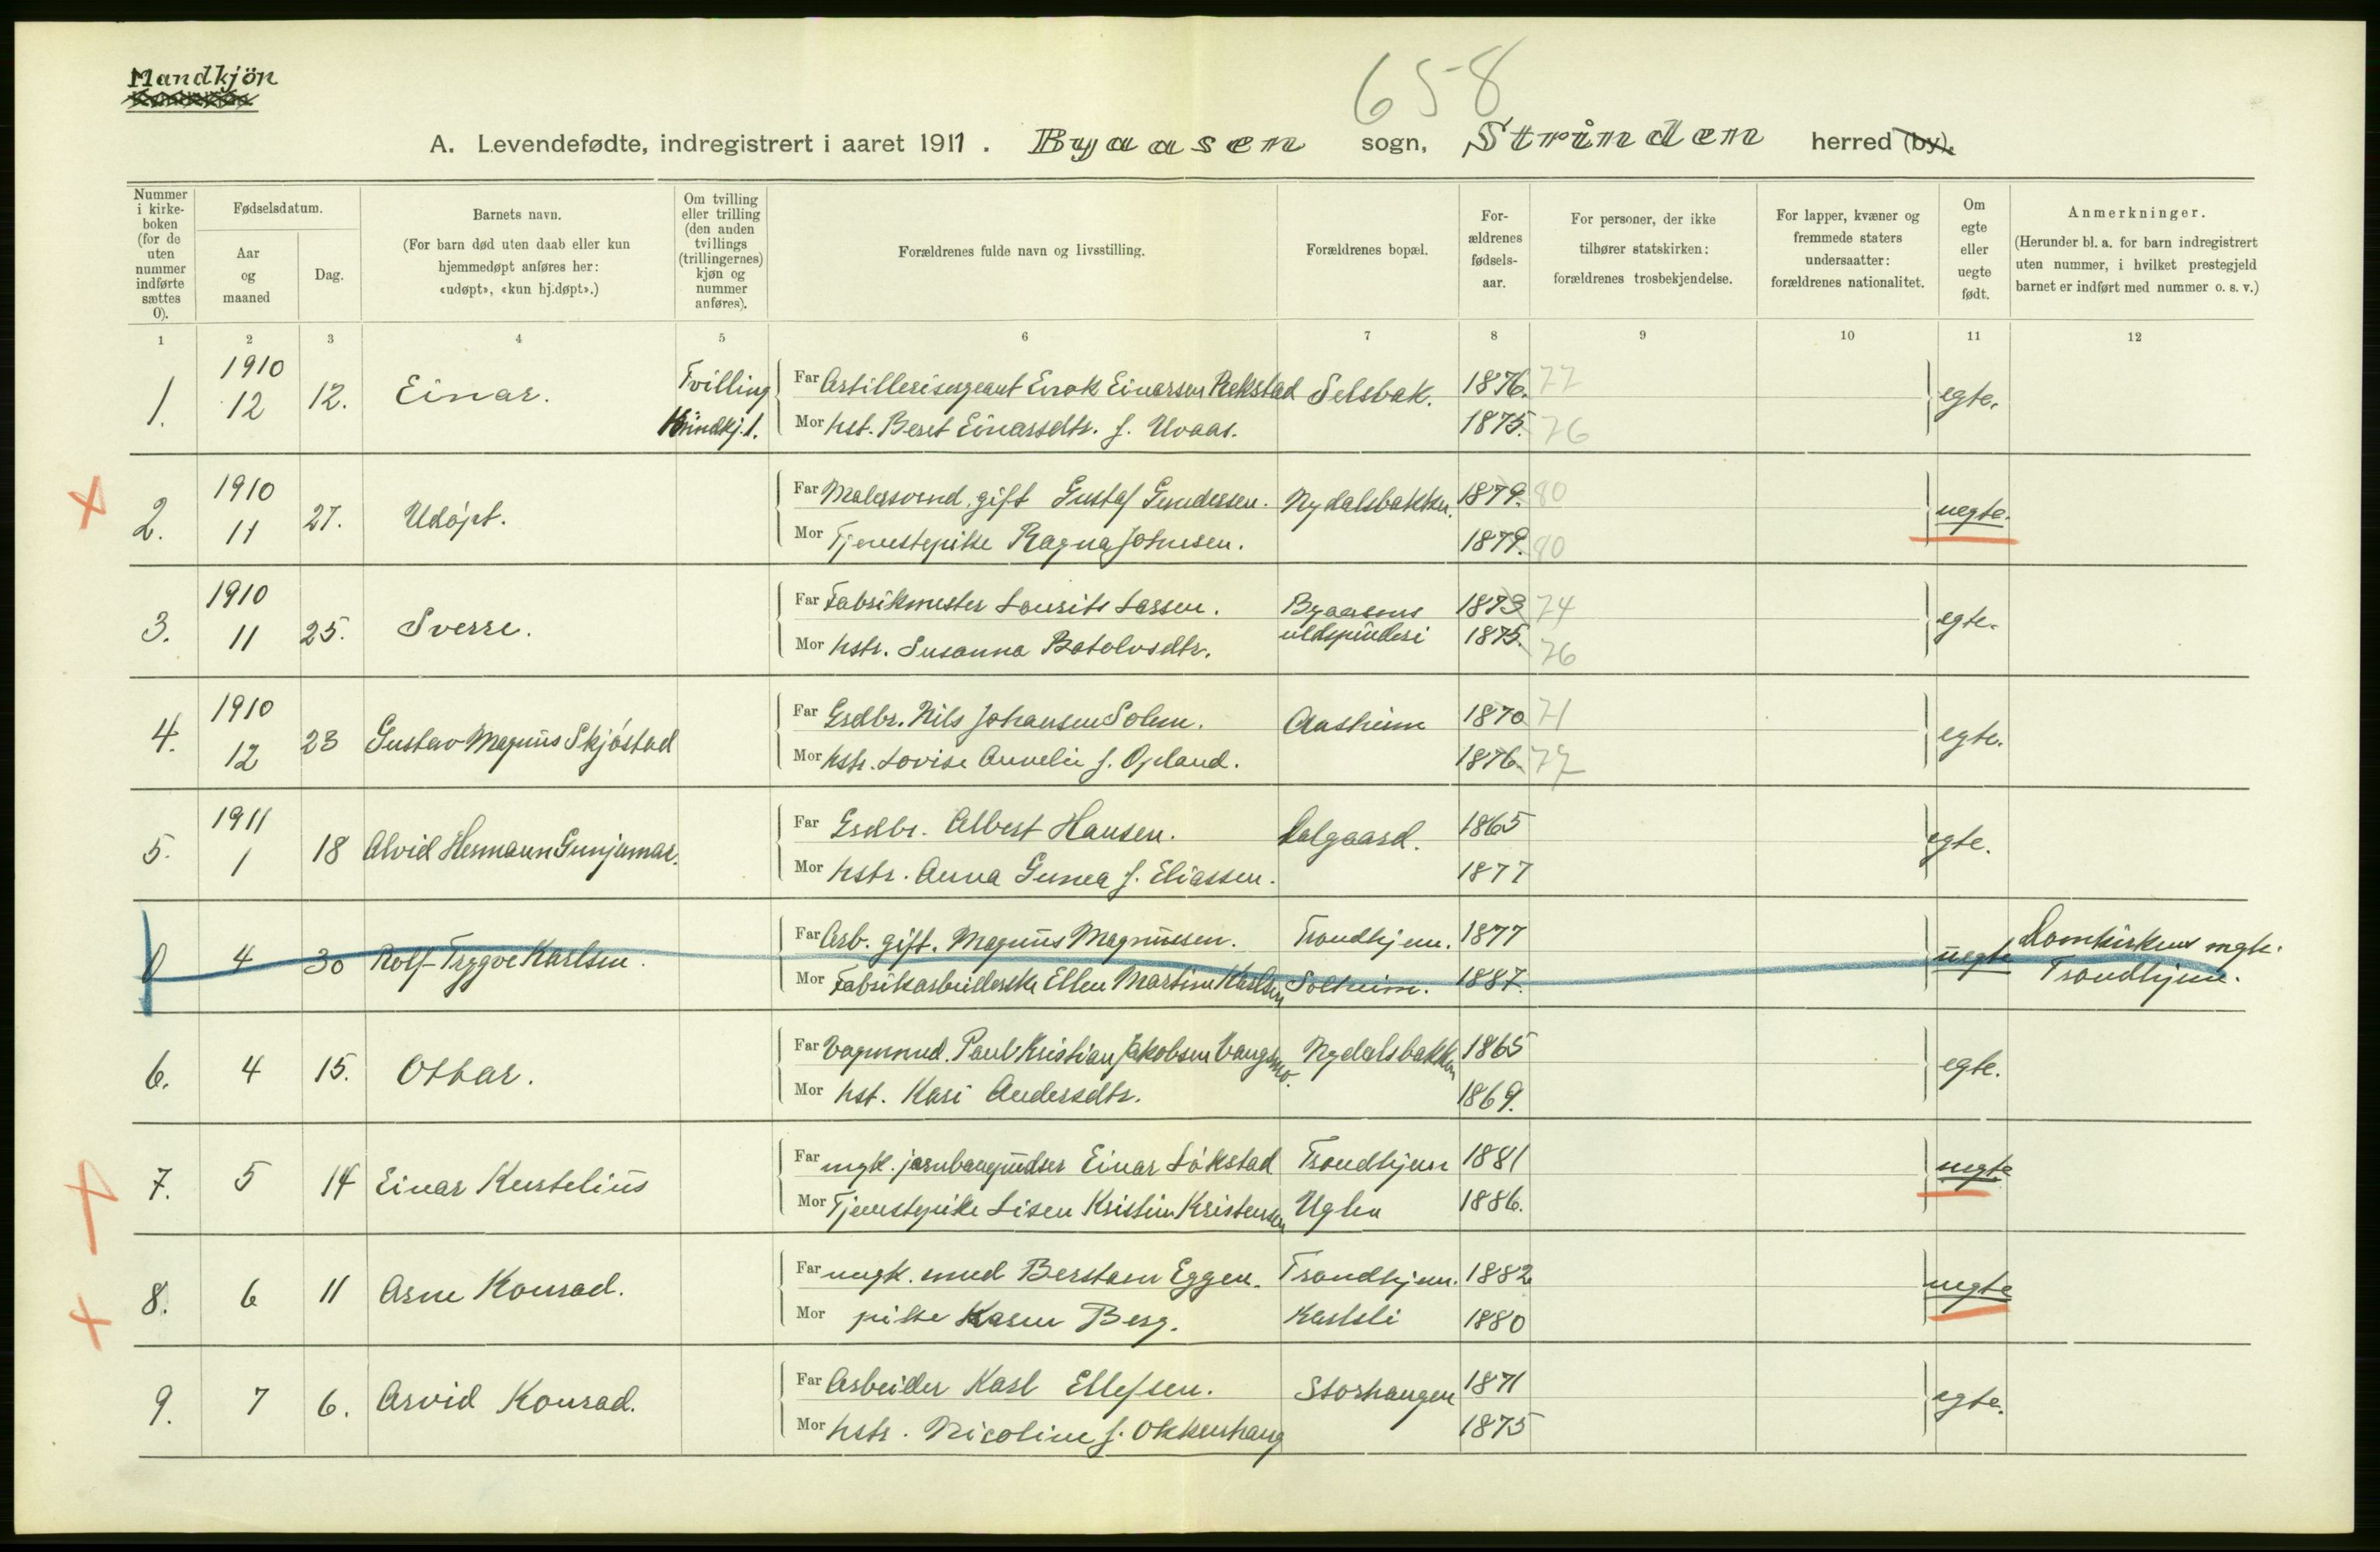 658
Mandkjön
A. Levendefødte, indregistrert i aaret 1911. Byaasen sogn, Strinden herred (by).
Nummer i kirkeboken (for de uten nummer indførte sættes 0).
Fødselsdatum.
Aar og maaned
Dag.
Barnets navn.
(For barn død uten daab eller kun hjemmedøpt anføres her: «udøpt», «kun hj.døpt».)
Om tvilling eller trilling (den anden tvillings (trillingernes) kjøn og nummer anføres).
Forældrenes fulde navn og livsstilling.
Forældrenes bopæl.
Forældrenes fødselsaar.
For personer, der ikke tilhører statskirken: forældrenes trosbekjendelse.
For lapper, kvæner og fremmede staters undersaatter: forældrenes nationalitet.
Om egte eller uegte født.
Anmerkninger.
(Herunder bl. a. for barn indregistrert uten nummer, i hvilket prestegjeld barnet er indført med nummer o. s. v.)
1 2 3 4 5 6 7 8 9 10 11 12
1. 1910 12 12. Einar. Tvilling Kvindkj. 1. Far Artillerisergeant Enok Einarsen Rekstad Selsbak. 1876. 77 egte.
Mor hst. Beret Einarsdtr. f. Uvaas. 1875. 76
2. 1910 11 27. Udøpt. Far Malersvend, gift Gustaf Gundersen. Nydalsbakken. 1879. 80 uegte.
Mor Tjenestepike Ragna Johnsen. 1879. 80
3. 1910 11 25. Sverre. Far Fabrikmester Laurits Larsen. Byaasens uldspinderi 1873 74 egte.
Mor hstr. Susanna Botolvsdtr. 1875. 76
4. 1910 12 23 Gustav Magnus Skjøstad Far Grdbr. Nils Johansen Solem. Aasheim 1870 71 egte.
Mor hstr. Lovise Annelie f. Opland. 1876. 77
5. 1911 1 18 Alvid Hermann Gunjemar. Far Grdbr. Albert Hansen. Dalgaard. 1865 egte.
Mor hstr. Anna Gunea f. Eliassen. 1877
0 4 30 Rolf Trygve Karlsen. Far Arb. gift. Magnus Magnussen. Trondhjem. 1877 uegte Domkirkens mgh. Trondhjem.
Mor Fabrikarbeiderske Ellen Martine Karlsen Solheim. 1887.
6. 4 15. Otbar. Far Vognmd. Paul Kristian Jakobsen Vangsmo. Nydalsbakken 1865 egte.
Mor hst. Kari Andersdtr. 1869.
7. 5 14 Einar Kurtelius Far ungk. jernbanepudser Einar Løkstad Trondhjem 1881 uegte
Mor Tjenestepike Lisen Kristine Kristensen Uglen 1886.
8. 6 11 Arne Konrad. Far ungk. smed Berstam Eggen. Trondhjem. 1882 uegte
Mor pike Karen Berg. Kastbli 1880
9. 7 6. Arvid Konrad. Far Arbeider Karl Ellefsen. Storhaugen 1871 egte.
Mor hstr. Nicoline f. Okkenhaug 1875